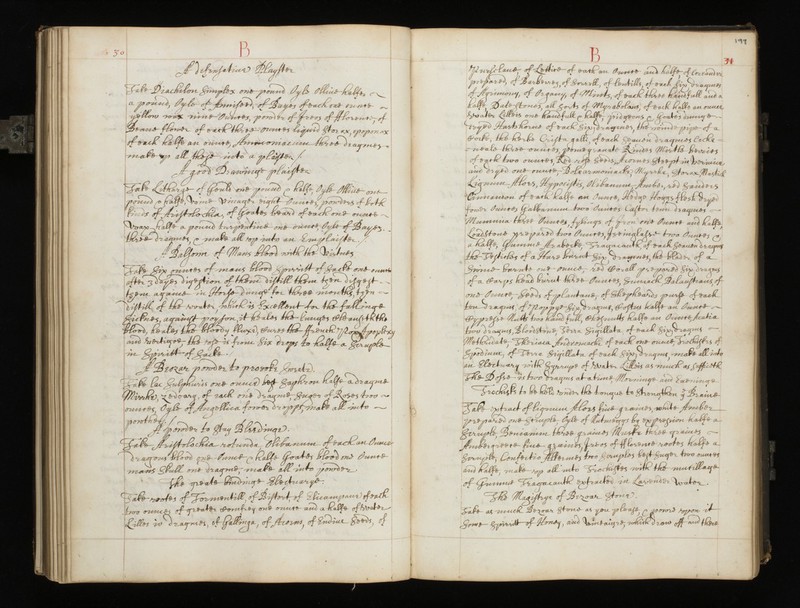 30
B
A defensative Playster
Take Diachelon Simplex one pound Oyle Ollive halfe
a pound, Oyle of Anniseed, of Bayes of each one ounce
yellow wax nine Ounces, powder of Ireos of fflorence, of
Beane flower of each three ounces liquid Storax,
of each halfe an ounce, Ammoniacum three dragmes
make up all these into a plaister
A good Drawinge plaister
Take Litharge of Gould one pound & halfe, Oyle Ollive one
pound & halfe, Vinegar eight Ounces, powders of both
kinds of Aristolochia, of Goates beard of each one ounce
Wax halfe a pound turpentine one ounce, Oyle of Bayes
three dragmes, make all up into an Emplaister
A Balsome of Mans blood with the Virtues
Take Six ounces of mans blood Spirritt of Sacke one ounce
after 3 dayes digestion of them distill them then digest
them againe in Horse dunge for three months, then
distill of the water, which is Excellent for the fallinge
Sicknes, against poyson, it heales the lunges
blood, heales the bloody fluxe, Cures the ffrench Pox,
and vertigoe, the use is from Six drops to halfe a Scruple
in Spirritt of Sacke
A Bezoar powder to provoke sweate
Take lac Sulphuris one ounce Saphron halfe a dragme
Mirrhe, zedoary of each one dragme, Suger of Roses two
ounces, Oyle of Angellica fower dropps, make all into
powder
A powder to stay Bleedinge
Take Aristolochia rotunda, Olebanum of each an Ounce
dragons blood one Ounce & halfe Goates blood one Ounce
mans Skull one dragme, make all into powder
The greate Bindinge Electuarye
Take rootes of Tormentill, of Bistort, of Elicampane of each
two ounces of greater Comfrey one ounce and a halfe of Water
Lillies dragmes, of Gallinga, of Acorns, of Endive Seeds, of
199
B
31
of Lettice of each an Ounce and halfe, of Coriander
prepared, of Barberies, of Sorrell, of Lentills, of each Six dragmes
of Agrimony, of of Mints, of each three handfull and a
halfe, Date stones, all Sorts of Myrabolans, of each halfe an ounce
Water Lillies one handfull & halfe, pidgeons & Goates dunge
Harteshorne of each Six dragmes, the winde pipe of a
the herbe Crista galli, of each Seaven dragmes
three ounces, pomegranate Rindes Mirtle berries
of each two ounces, Red rose Seeds, Acornes Steept in Verjuice
and dryed one ounce, Bolearmoniacke, Myrrhe, Storax, Mastick
Lignum Aloes, Hypocistis, Olibanum, Amber, red Sanders
Cinnamon of each halfe an Ounce, Hedge Hoggs flesh dryed
fower Ounces Galbanum two Ounces, Castor tenn dragmes
Mummia three Ounces, fylings of Iron one Ounce and halfe,
Loadstone prepared two Ounces, two Ounces &
a halfe, Gumme Arabecke, Tragacanth, of each Seaven dragmes
the Testicles of a Hare burnt Six dragmes, the blader of a
Swine burnt one ounce, red Corall prepared Six dragmes
of a Carps head burnt three Ounces, Sumack Balaustians of
one Ounce, Seeds of plantane, of Shepheards purse of each
tenn dragmes, of Poppye Six dragmes, Cistus halfe an Ounce
Cypresse Nutts two handfull, Chesnutts halfe an Ounce, Acatia
two dragmes, Bloodstone, Terra Sigillata, of each Six dragmes
Methridate, Theriaca Andromachi of each one ounce, Trochisks of
Spodium, of Terra Sigillata of each Six dragmes, make all into
an Electuary with Syrrupe of Water Lillies as much as sufficeth
The Dosse is two dragmes at a time Morninge and Eveninge
Trochisks to be held under the tongue to strengthen ye Braine
Take extract of lignum Aloes five graines, white Amber
prepared one Scruple, Oyle of Nutmeggs by expression halfe a
Scruple, Benzamin three graines Muske three graines
Ambergreece five graines, Ireos of fflorence rootes halfe a
Scruple, Confectio Alkermes two Scruples, best Suger two ounces
and halfe, make up all into Trochisks with the mucillage
of Gumme Tragacanth extracted in Lavender water
The Magistery of Bezoar Stone
Take as much Bezoar Stone as you please, & powre upon it
Some Spirritt of Honey, and Vineaigre, which draw off and then